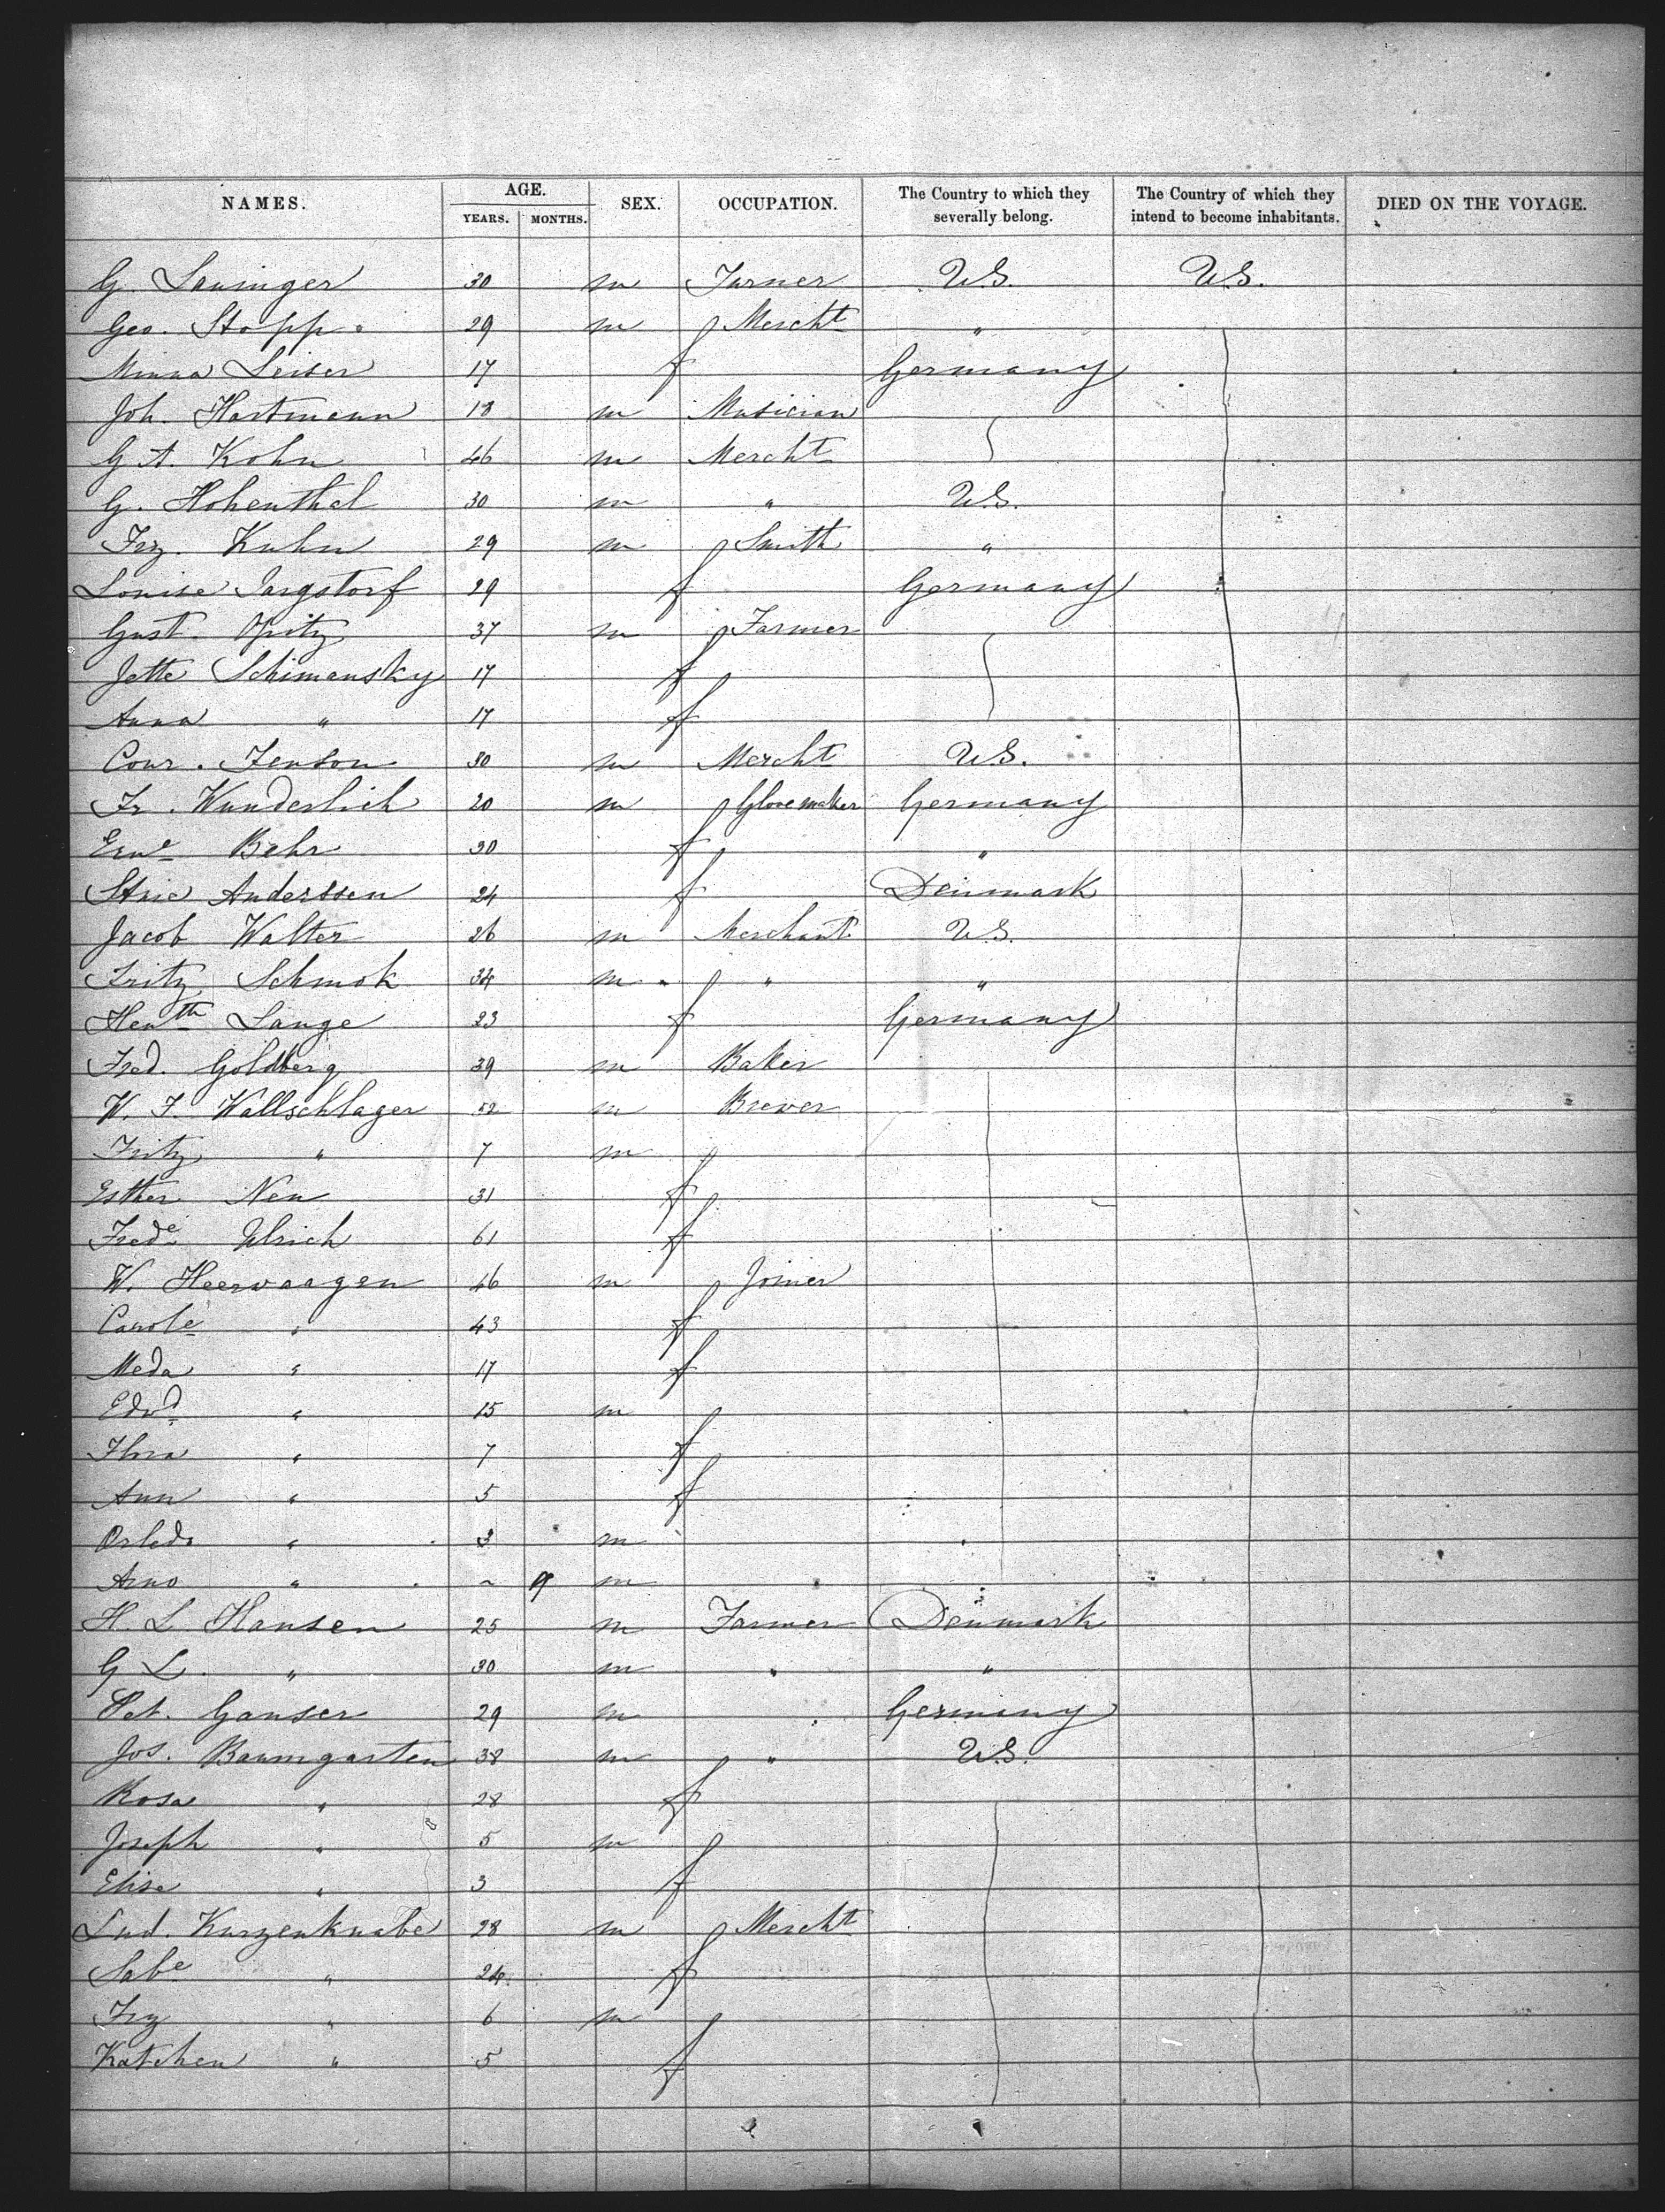 NAMES. AGE. SEX. OCCUPATION. The Country to which they severally belong. The Country of which they intend to become inhabitants. DIED ON THE VOYAGE.
YEARS. MONTHS.
G. Lauinger 30 m Turner U.S. U.S.
Geo. Stopp 29 m Mercht "
Minna Leiser 17 f Germany
Joh. Hartmann 18 m Musician
G A. Kohn 46 m Mercht
G. Hohenthal 30 m " U.S.
Frz. Kuhn 29 m Smith "
Louise Jargstorf 29 f Germany
Gust. Opitz 37 m Farmer
Jette Schimansky 17 f
Anna " 17 f
Conr. Jenson 50 m Mercht U.S.
Fr. Wunderlich 20 m Glovemaker Germany
Erne Behr 30 f "
Stine Anderssen 24 f Denmark
Jacob Walter 26 m Merchant U.S.
Fritz Schmok 34 m " "
Hentte Lange 23 f Germany
Fred. Goldberg 39 m Baker
W. F. Wallschlager 52 m Brewer
Fritz " 7 m
Esther Neu 31 f
Frede Ulrich 61 f
W. Heerwaagen 46 m Joiner
Carole " 43 f
Meda " 17 f
Edwd " 15 m
Flora " 7 f
Ann " 5 f
" 3 m
Arno " ~ 9 m
H. L. Hansen 25 m Farmer Denmark
G L. " 30 m " "
Pet. Ganser 29 m Germany
Jos. Baumgarten 38 m " U.S.
Rosa " 28 f
Joseph " 5 m
Elise " 3 f
Lud. Kurzenknabe 28 m Mercht
Sabe " 24 f
Frz " 6 m
Katchen " 5 f